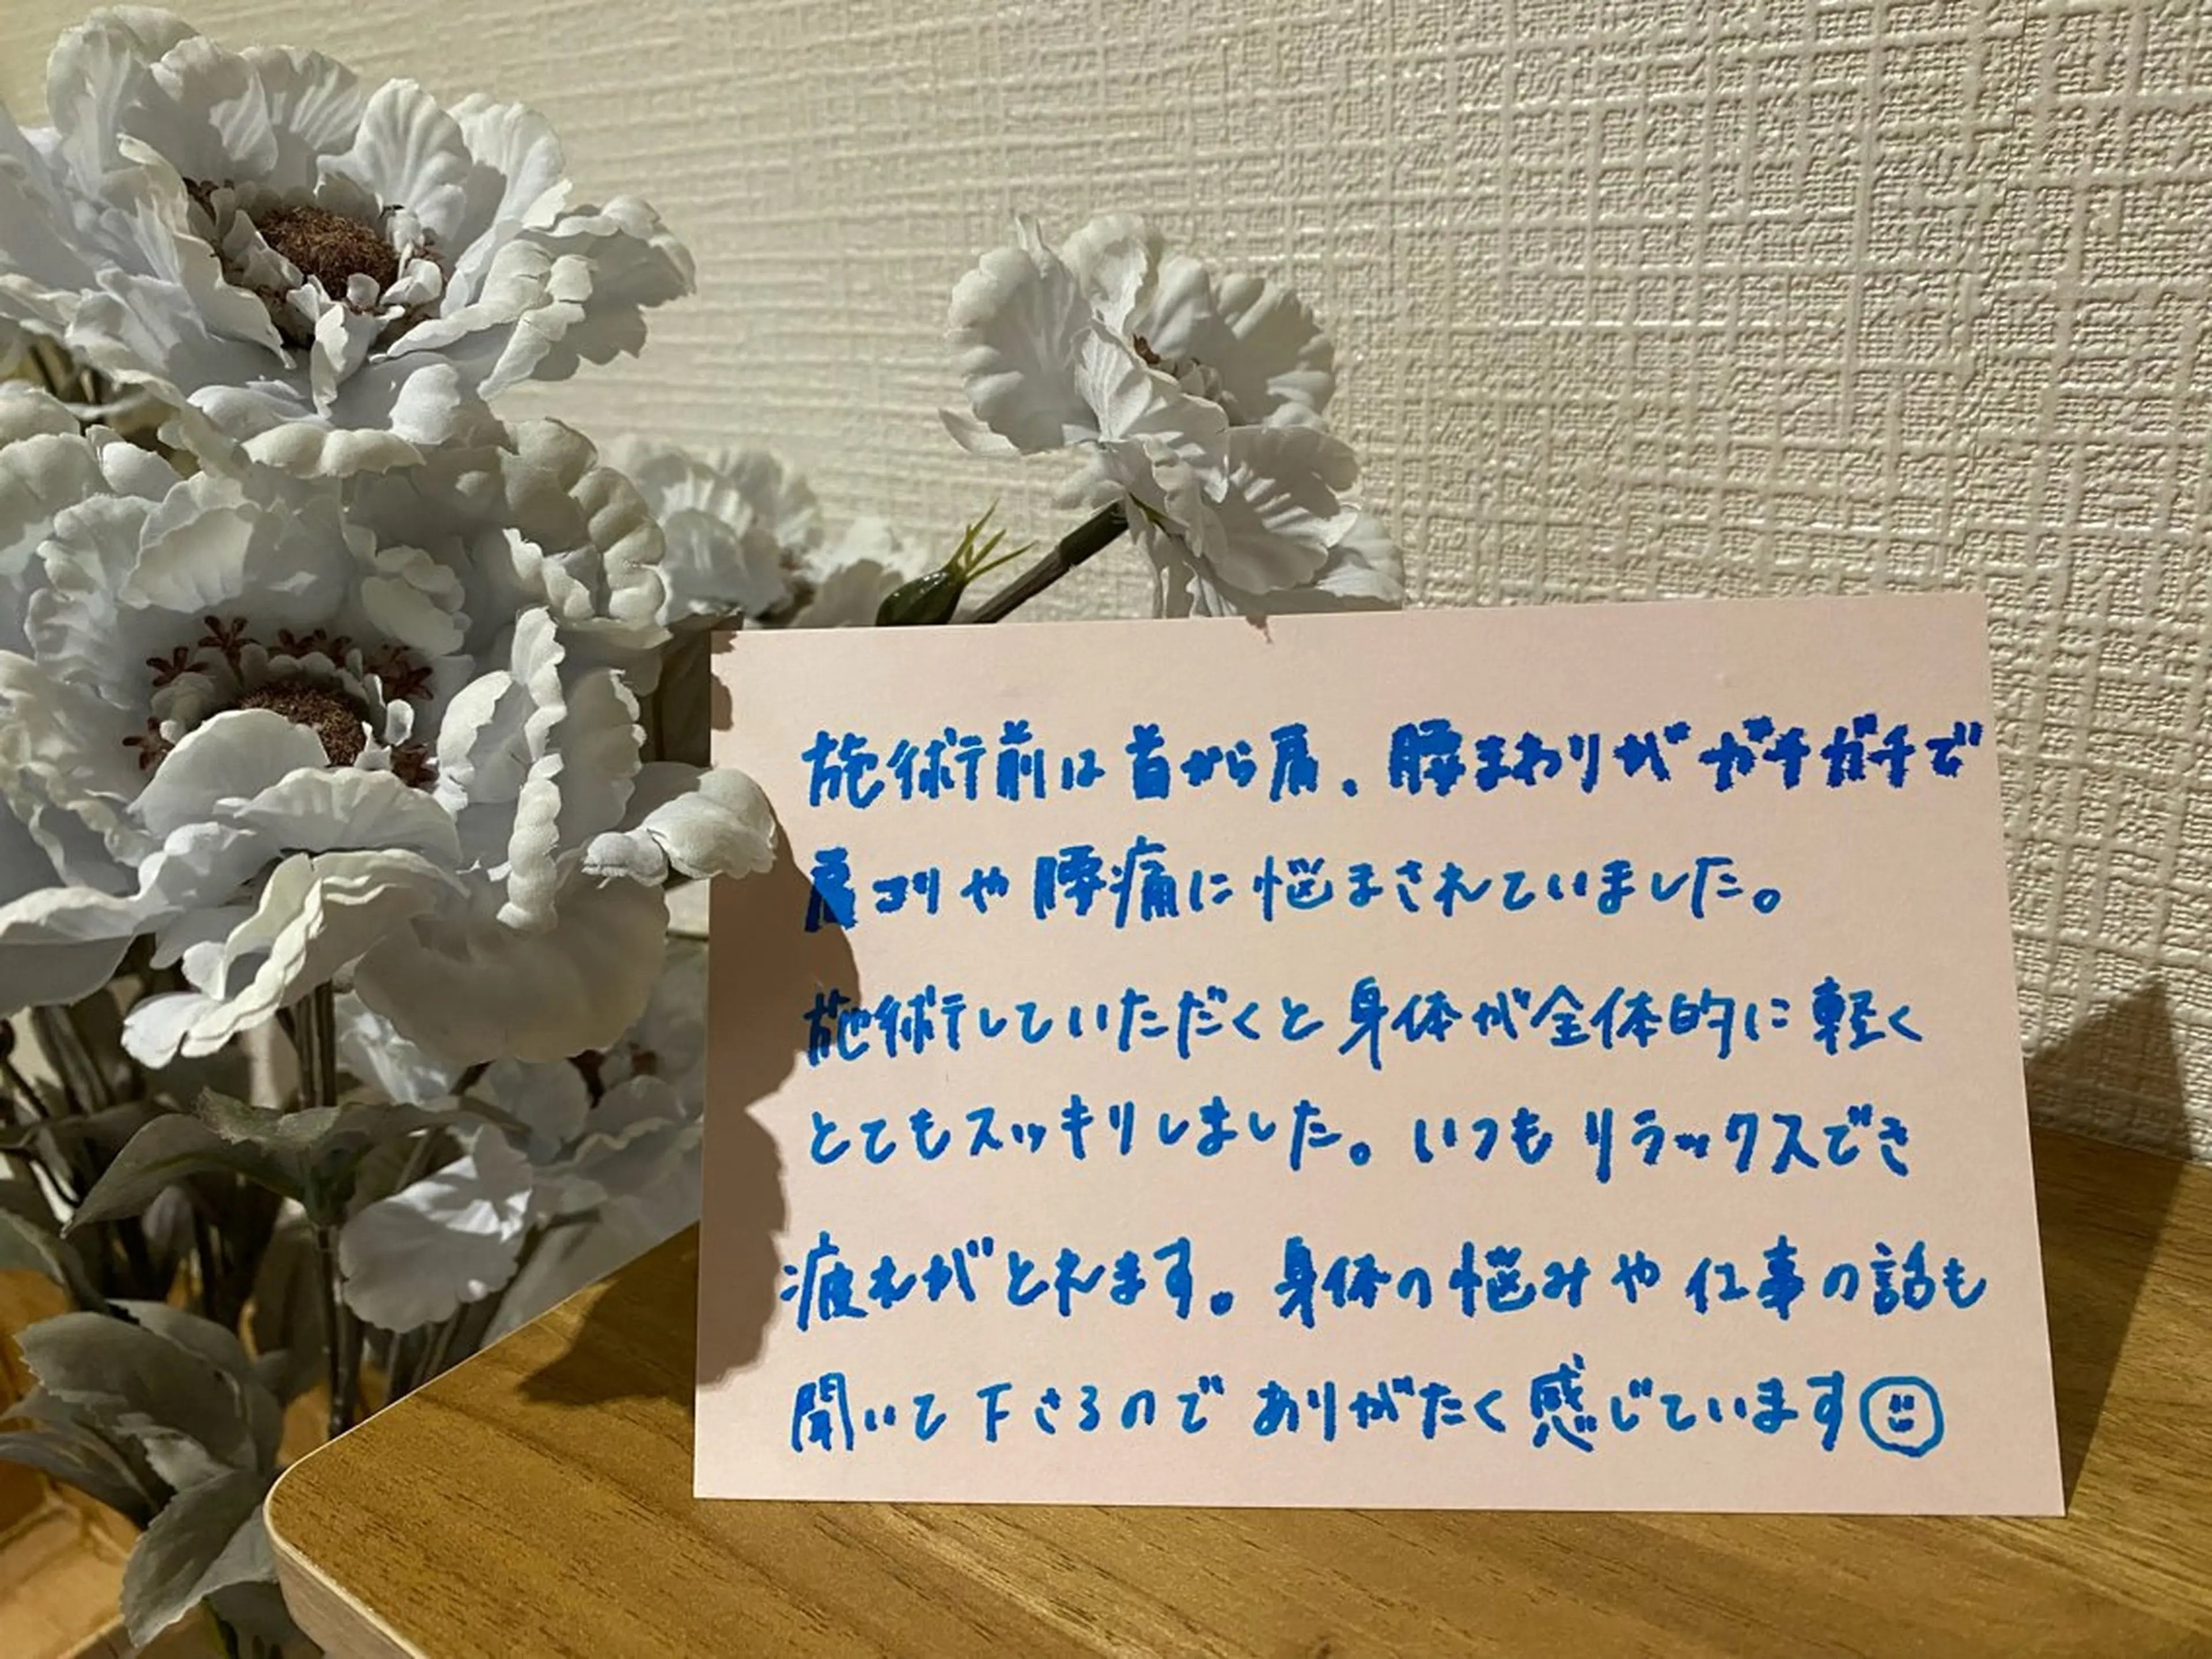 施術前は首から肩、腰まわりがガチガチで
肩コリや腰痛に悩まされていました。
施術していただくと身体が全体的に軽く
とてもスッキリしました。いつもリラックスでき
疲れがとれます。身体の悩みや仕事の話も
聞いて下さるのでありがたく感じています